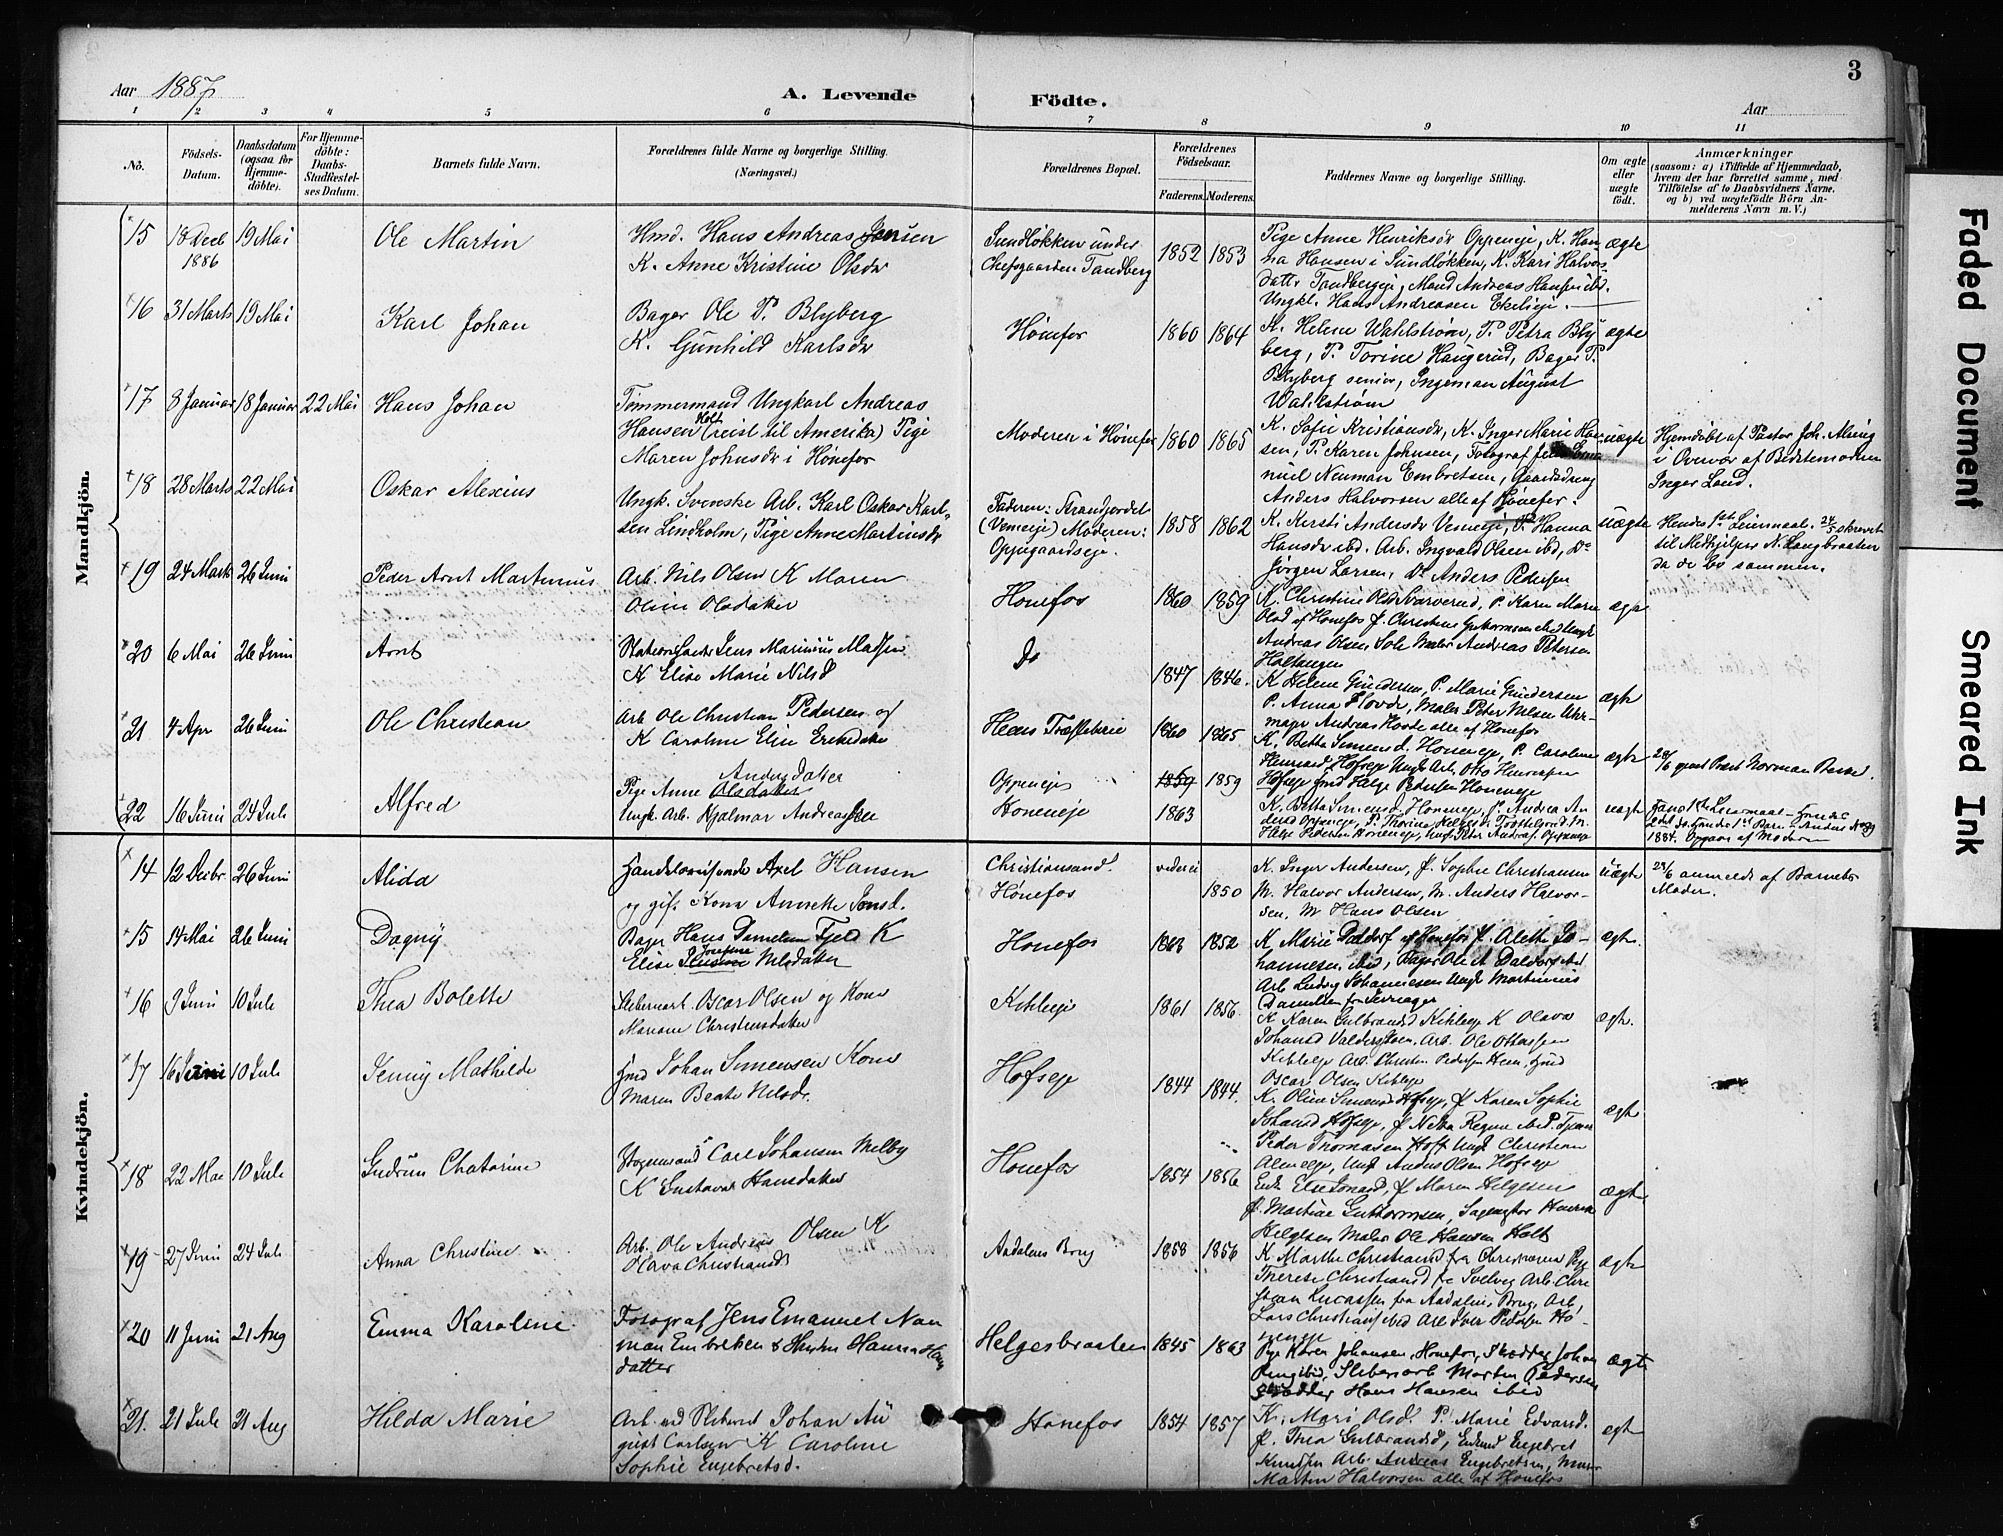 Aar 1887
A. Levende Fødte.
Aar
3
1 2 3 4 5 6 7 8 9 10 11
No.
Fødsels-Datum.
Daabsdatum (ogsaa for Hjemmedøbte).
For Hjemmedøbte: Daabs-Stadfæstelses Datum.
Barnets fulde Navn.
Forældrenes fulde Navne og borgerlige Stilling. (Næringsvei.)
Forældrenes Bopæl.
Forældrenes Fødselsaar.
Faderens. Moderens.
Faddernes Navne og borgerlige Stilling.
Om ægte eller uægte født.
Anmærkninger
(saasom: a) i Tilfælde af Hjemmedaab, hvem der har forrettet samme, med Tilføielse af to Daabsvidners Navne, og b) ved uægtefødte Børn Anmelderens Navn m. V.)
Mandkjön.
15 18 Decb 1886 19 Mai Ole Martin
Hmd. Hans Andreas Jensen
K. Anne Kristine Olsdr
Sundløkken under
Chefsgaarden Tandberg
1852 1853
Pige Anne Henriksdr Oppeneje, K. Han
na Hansen i Sundløkken, K. Kari Halvors
datt. Tandbergeje, Mand Andreas Hansen ibd.
Ungkl. Hans Andreasen Ekeleje.
ægte
16 31 Marts 19 Mai Karl Johan
Bager Ole P. Blyberg
K. Gunhild Karlsdr
Hønefos
1860 1864
K. Helene Wahlstrøm, P. Petra Bly
berg, P. Torine Haugerud, Bager P.
Blyberg senior, Ingeman August
Wahlstrøm
ægte
17 8 Januar 18 Januar 22 Mai Hans Johan
Tømmermand Ungkarl Andreas
Hansen Holt (reist til Amerika) Pige
Maren Johnsdr i Hønefos
Moderen i Hønefos
1860 1865
K. Sofie Kristiansdr, K. Inger Marie Han
sen, P. Karen Johnsen, Fotograf Jens Ema
nuel Neuman Embretsen, Gaardsdreng
Anders Halvorsen alle af Hønefos.
uægte
Hjemdøbt af Pastor Joh. Alsing
i Overvær af Bedstemoderen
Inger Lund.
18 28 Marts 22 Mai Oskar Alexius
Ungk. Svenske Arb. Karl Oskar Karl-
sen Lindholm, Pige Anne Martinsdr
Faderen: Strandjordet
(Vemeeje) Moderen:
Oppigaardseje.
1858 1862
K. Kersti Andersdr Vemeeje, P. Hanna
Hansdr ibd. Arb. Ingvald Olsen ibd, Do
Jørgen Larsen, Do Anders Pedersen
uægte
Hendes 1ste Leiermaal. 24/5 skrevet
til Medhjelper N. Langbraaten
da de bo sammen.
19 24 Marts 26 Juni Peder Arnt Martinius
Arb. Nils Olsen K Maren
Oline Olsdatter
Honefos
1860 1859
K. Christine Olsd Svarverud, P. Karen Marie
Olsd af Honefos P. Christine Guttormsen ibid Ungk
Andreas Olsen Sole Maler Andreas Petersen
ægte
20 6 Mai 26 Juni Arnt
Jens Marinius Madsen
K Elise Marie Nilsd
Do
1847 1846.
K Helene Gundersen, P. Marie Gundersen
P. Anna Hovde, Maler Peter Nilsen Uhr-
mager Andreas Hovde alle af Honefos
ægte
21 4 Apr 26 Juni Ole Christian
Arb Ole Christian Pedersen og
K Caroline Elise Eriksdatter
Heens Træsliberi
1860 1865
K. Betta Simensd. Honeneje, P. Caroline
Hofseje Ungk Arb. Otto Henriksen
Hofseje Hmd Helge Pedersen Honeneje
ægte
22 16 Juni 24 Juli Alfred
Pige Anne Andersdatter
Ungk. Arb. Hjalmar Andreassen
Oppeneje
Honeneje
1859 1859
1863
K. Betta Simensd. Honeneje, P. Andrea An
uægte
Kvindekjön.
14 12 Decbr. 26 Juni Alida
Handelsreisende Axel Hansen
og gift Kone Annette Jensd.
Christiansand.
Hönefos
1850
K. Inger Andersen, P. Sophie Christiansen
M. Halvor Andersen, M. Anders Halvor-
sen, M Hans Olsen
uægte
28/6 anmeldt af Barnets
Moder.
15 14 Mai 26 Juni Dagny
Bager Hans Danielsen Fjeld K
Elise Josefine Nilsdatter
Honefos
1863 1852
K Marie Daldorf af Honefos P. Alette Jo-
hannesen ibid, Bager Ole A Daldorf ibid
Arb Ludvig Johannesen Ungk Martinius
ægte.
16 9 Juni 10 Juli Thea Bolette
Sliberiarb. Oscar Olsen og Kone
Mariane Christensdatter
Kihleeje
1861 1856
K Karen Gulbrandsd Kihleeje K Olava
Johansd Arb. Ole Ottossen
Kihleeje Arb. Christen Pedersen Heen, Hmd
Oscar Olsen Kihleje
ægte.
17 16 Juni 10 Juli Jenny Mathilde
Hmd Johan Simensen Kone
Maren Beate Nilsdr.
Hofseje
1844 1844.
K. Oline Simensd Hofseje, P. Karen Sophie
Johansd Hofseje, P. Netta
Peder Thomasen Hofs Ungk Christian
Ungk Anders Olsen Hofseje
ægte
18 22 Mai 10 Juli Gudrun Chatarine
Carl Johansen Melby
K Gustava Hansdatter
Honefos
1854 1856
Enke Else Jonasd, P. Maren Helgesen
P. Martine Guttormsen, Sagmester Henrik
Helgesen Maler Ole Hansen Holt
ægte
19 27 Juni 24 Juli Anna Christine
Arb. Ole Andreas Olsen K
Olava Christiansd
Aadalens Brug
1858 1856
K Marthe Christiansd fra Christiania Pige
Therese Christiansd fra Svelvig Arb. Chri
stian Lucassen fra Aadalens Brug, Arb.
Lars Christiansen ibid Arb Iver Pedersen Ho-
neneje
ægte
20 11 Juni 21 Aug Emma Karoline
Fotograf Jens Emanuel Nau
man Embretsen & Hustru Hanna Hans
datter
Helgesbraaten
1845 1863
Pige Karen Johansen Honefos, Skrædder Johan
Ring ibid, Sliberiarb Morten Pedersen
Skrædder Hans Hansen ibid
ægte
21. 21 Juli 21 Aug Hilda Marie
Arb. ved Sliberiet Johan Au
gust Carlsen K Caroline
Sophie Engebretsd.
Honefos
1854 1857
K. Mari Olsd. P. Marie Edvardsd.
P. Thea Gulbrandsd, Enkmd Engebret
Knudsen Arb. Andreas Engebretsen, Murer
Martin Halvorsen alle af Honefos
ægte
Faded Document
Smeared Ink